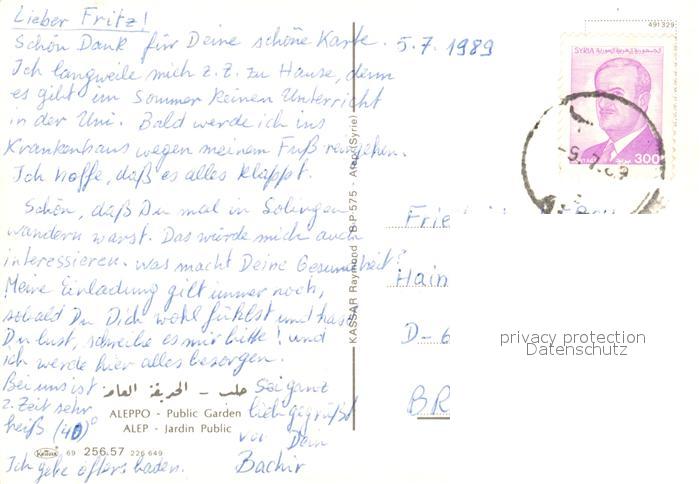 Lieber Fritz!
Schön Dank für Deine schöne Karte. 5.7.1989
Ich langweile mich z.Z. zu Hause, denn
es gibt im Sommer keinen Unterricht
in der Uni. Bald werde ich ins
Krankenhaus wegen meinem Fuß reingehen.
Ich hoffe, daß es alles klappt.
Schön, daß Du mal in Solingen
wandern warst. Das würde mich auch
interessieren. Was macht Deine Gesundheit?
Meine Einladung gilt immer noch,
sobald Du Dich wohl fühlst und hast
Du Lust, schreibe es mir bitte! und
ich werde hier alles besorgen.
Bei uns ist
z. Zeit sehr
heiß (40)°
Ich gehe öfters baden.
Sei ganz
lieb gegrüßt
von Dein
Bachir
حلب - الحديقة العامة
ALEPPO - Public Garden
ALEP - Jardin Public
69 256.57 226 649
KASSAR Raymond - B.P 575 - Alep (Syrie)
491329
SYRIA الجمهورية العربية السورية
300
5.7.89
Hain
D-6
BR
privacy protection
Datenschutz